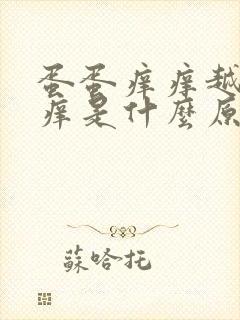 蛋蛋痒痒越
痒是什麼原
蘇哈托